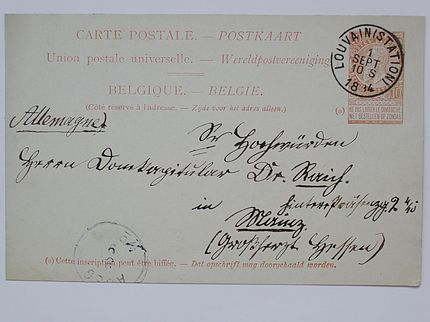 CARTE POSTALE. — POSTKAART
Union postale universelle. — Wereldpostvereeniging
BELGIQUE. — BELGIE.
(Côté réservé à l'adresse. — Zijde voor het adres alleen.)
LOUVAIN (STATION)
1
SEPT
10 S
1894
10
NE PAS LIVRER LE DIMANCHE
NIET BESTELLEN OP ZONDAG
(o)
Allemagne.
Sr Hochwürden
Herrn Domkapitular Dr. Raich.
in
Mainz.
(Großherzt Hessen)
(o) Cette inscription peut être biffée. — Dat opschrift mag doorgehaald worden.